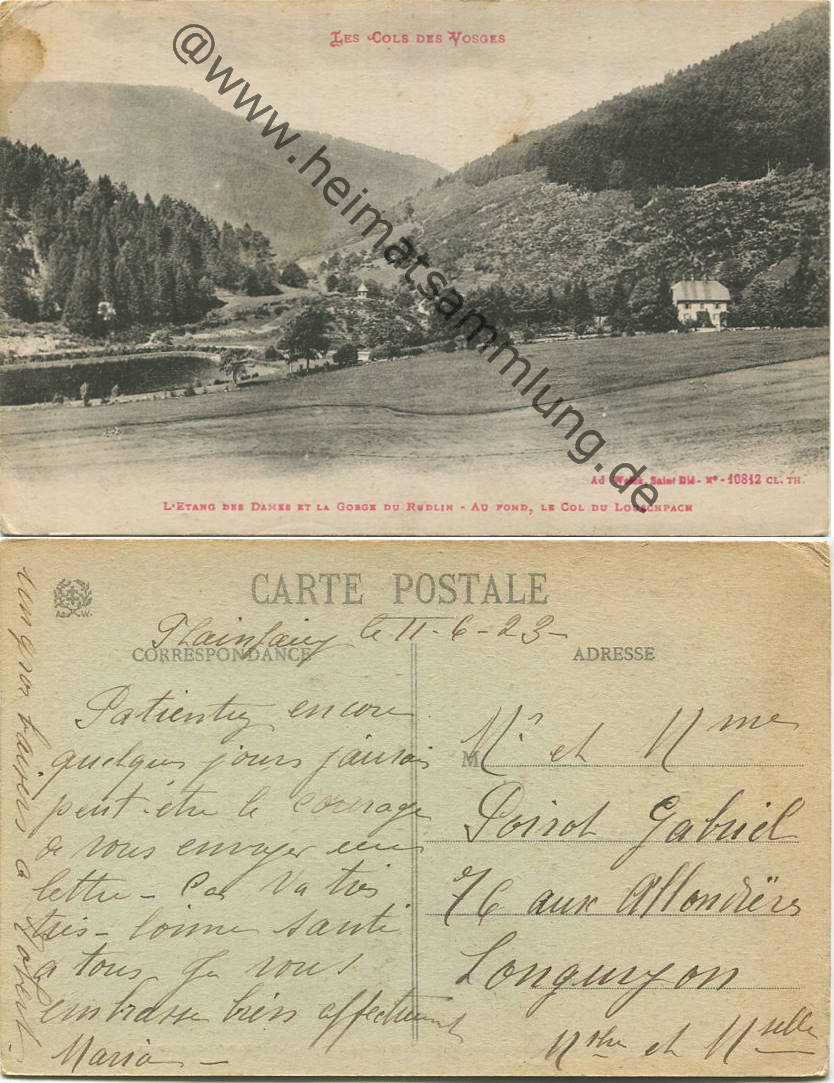 LES COLS DES VOSGES
@www.heimatsammlung.de
Ad Weick, Saint Dié - Nº - 10812 CL. TH.
L'ETANG DES DAMES ET LA GORGE DU RUDLIN - AU FOND, LE COL DU LOUSCHPACH
CARTE POSTALE
A. W.
Plainfaing le 11-6-23-
CORRESPONDANCE
ADRESSE
Patientez encore
quelques jours j'aurais
peut-être le courage
de vous envoyer une
lettre - Ca va très
très - bonne santé
a tous. Je vous
embrasse bien affectueusement
Maria -
un gros baisers a Robert
M
Mr et Mme
Poirot Gabriel
76 aux
Longuyon
Mrthe et Mselle